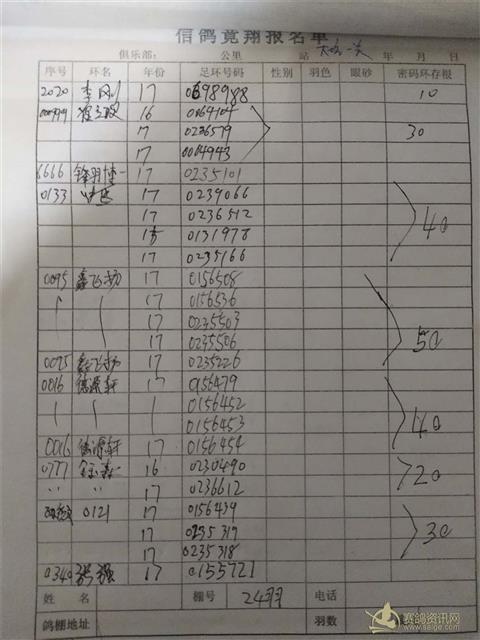 信鸽竞翔报名单
俱乐部: 公里 站 大哈一关 年 月 日
序号 环名 年份 足环号码 性别 羽色 眼砂 密码环存根
2020 李刚 17 0698988 10
16 0064104
17 0236579 30
17 0004943
6666 17 0235101
0133 17 0239066
17 0236512 40
0131978
17 0235166
0095 鑫飞扬 17 0156508
17 0156536
17 0235503
17 0235506 50
0095 鑫飞扬 17 0235226
0016 德源轩 17 0156479
0156452
0156453 40
0016 德源轩 17 0156454
0777 16 0230490 20
〃 〃 17 0236612
0121 17 0156439
17 0235319 30
17 0235318
0340 张强 17 0155721
姓 名 棚号 24羽 电话
鸽棚地址 羽数
赛鸽资讯网
www.saige.com